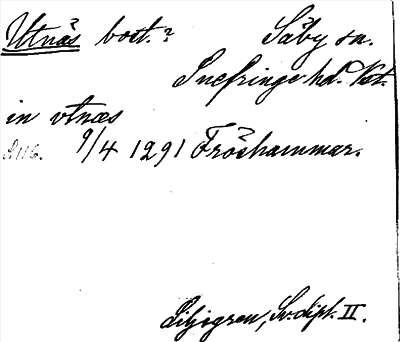 Utnäs bost.? Säby sn.
Snefringe hd. Vst.
in vtnæs
S.116. 9/4 1291 Fröshammar.
Liljegren, Sv. dipl. II.